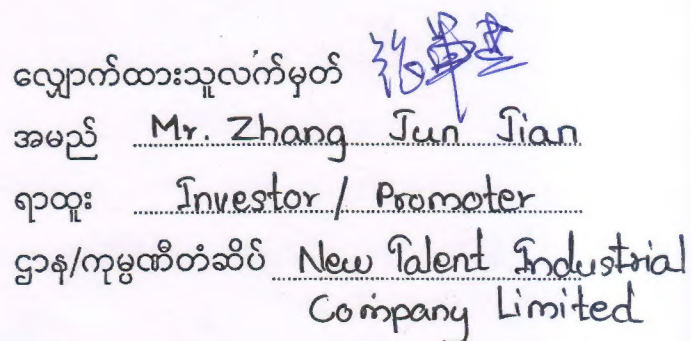 လျှောက်ထားသူလက်မှတ်
အမည် Mr. Zhang Jun Jian
ရာထူး Investor / Promoter
ဌာန/ကုမ္ပဏီတံဆိပ် New Talent Industrial
Company Limited